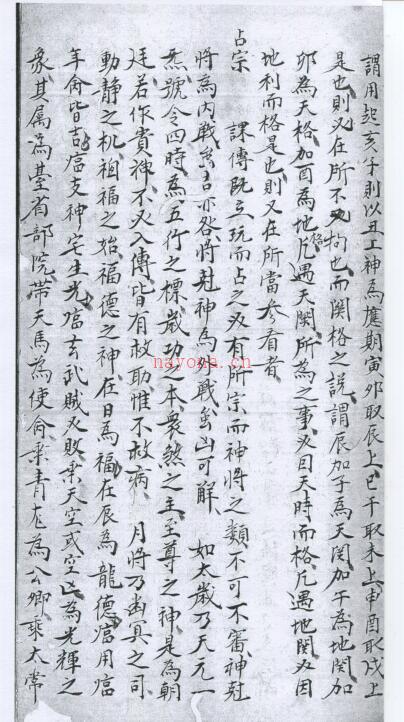 謂用起亥子則以丑上神為應期寅夘取辰上巳午取未上申酉取戌上
是也則又在所不必拘也而関格之説謂辰加子為天関加午為地関加
夘為天格加酉為地格凡遇天関所為之事必因天時而格凡遇地関必因
地利而格是也則又在所當参看者
占宗 課傳既立玩而占之必有所宗而神將之類不可不審神尅
將為内戰虽吉亦咎將尅神為外戰虽凶可解 如太歲乃天元一
炁號令四時為五行之標歲功之本衆煞之主至尊之神是為朝
廷若作貴神不必入傳皆有救助惟不救病 月將乃幽冥之司
動静之机祖福之始福德之神在日為福在辰為龍德臨用臨
年命皆吉臨支神宅生光臨玄武賊必敗乗天空或空亡為光輝之
象其属為臺省部院帶天馬為使命乗青龙為公卿乗太常
nayona.cn